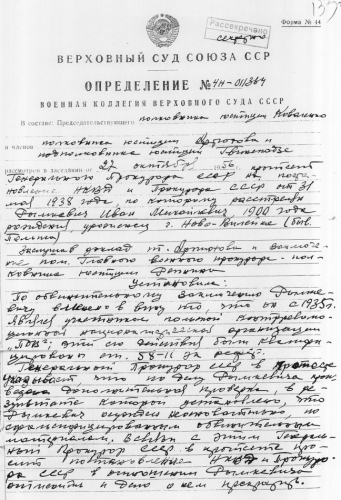 Рассекречено
Форма № 44
секретно
ВЕРХОВНЫЙ СУД СОЮЗА ССР
ОПРЕДЕЛЕНИЕ № 4н-011364
ВОЕННАЯ КОЛЛЕГИЯ ВЕРХОВНОГО СУДА СССР
В составе: Председательствующего полковника юстиции Коваленко
и членов полковника юстиции и
подполковника юстиции
рассмотрев в заседании от 27 октября 1956 протест
Генерального Прокурора СССР на поста-
новление НКВД и Прокурора СССР от 31
мая 1938 года, по которому расстрелян
Иван 1900 года
рождения, уроженец г. Ново-Вилейка (быв.
Польша).
Заслушав доклад т. и заключе-
ние пом. Главного военного прокурора - пол-
ковника юстиции
Установила:
По обвинительному заключению
вменено в вину то, что он с 1935 г.
являлся участником польской контррево-
люционной националистической организации
"ПОВ", эти его действия были квалифи-
цированы ст. 58-11 УК РСФСР.
Генеральный Прокурор СССР в протесте
указывает, что по делу про-
ведена дополнительная проверка, в ре-
зультате которой установлено, что
осужден неосновательно, по
сфальсифицированным обвинительным
материалам. В связи с этим Генераль-
ный Прокурор СССР в протесте про-
сит постановление НКВД и Прокуро-
ра СССР в отношении
отменить и дело о нем прекратить.